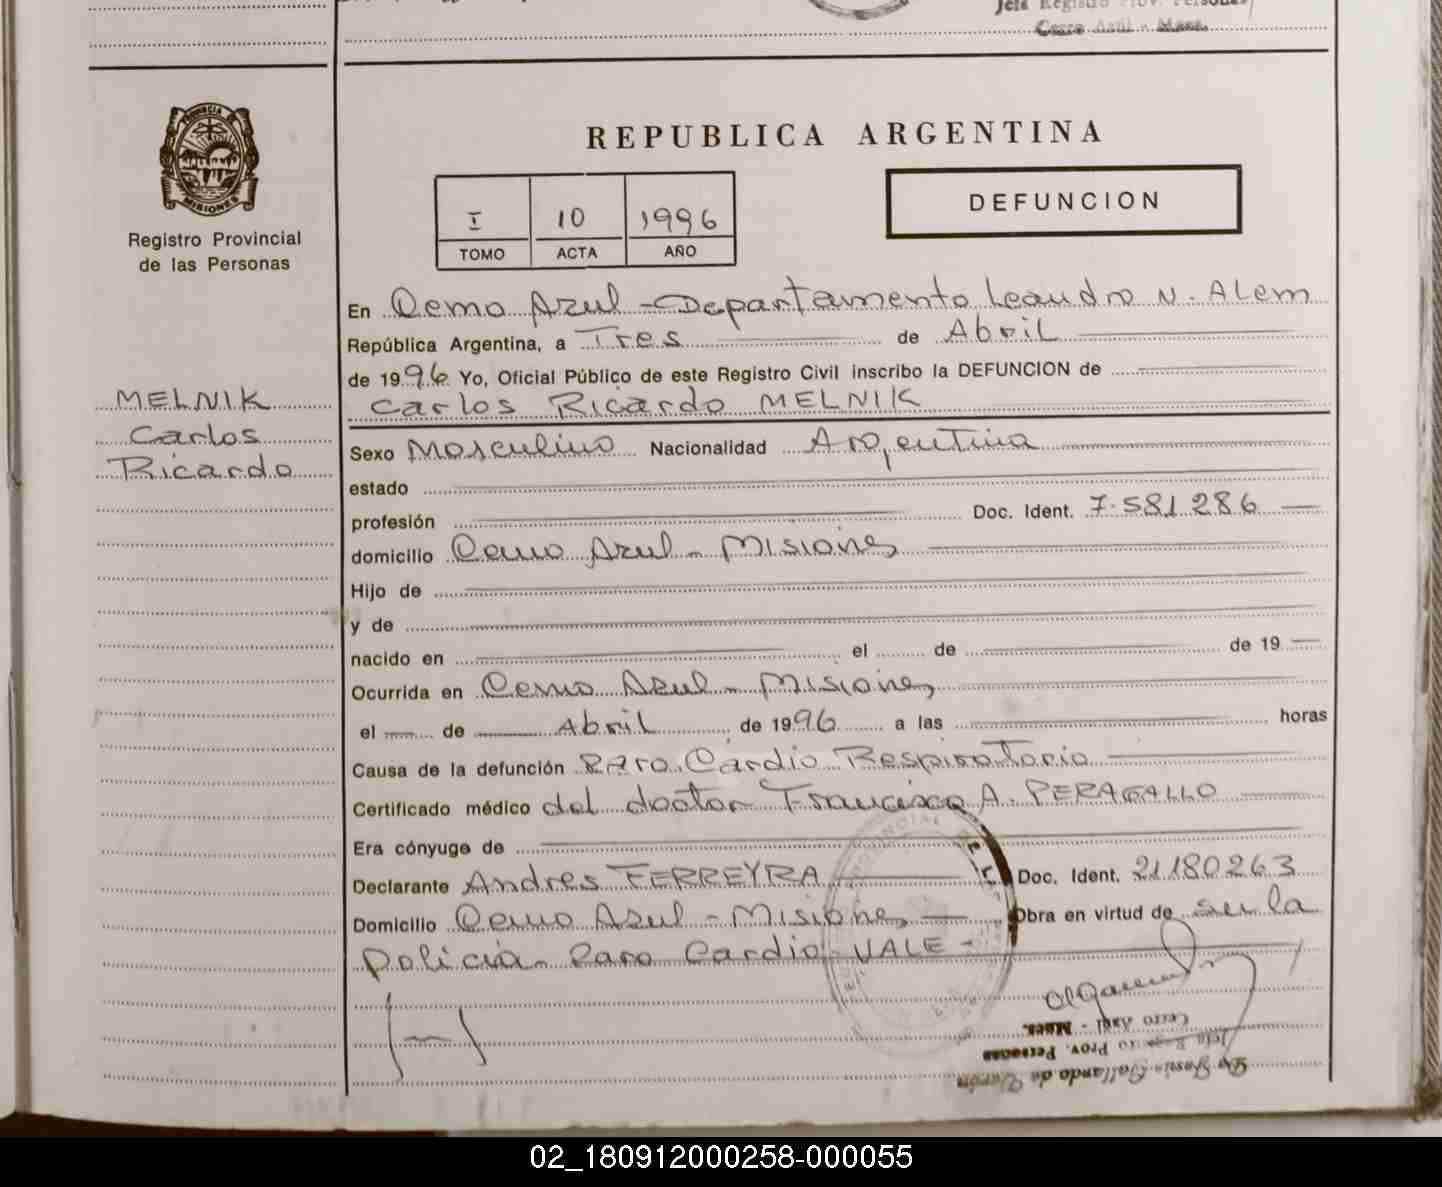 Jefa Registro Prov. Personas
Cerro Azul - Mnes.
PROVINCIA DE
MISIONES
Registro Provincial
de las Personas
REPUBLICA ARGENTINA
DEFUNCION
I 10 1996
TOMO ACTA AÑO
En Cerro Azul - Departamento Leandro N. Alem
República Argentina, a Tres de Abril
de 1996 Yo, Oficial Público de este Registro Civil inscribo la DEFUNCION de
Carlos Ricardo MELNIK
MELNIK
Carlos
Ricardo
Sexo Masculino Nacionalidad Argentina
estado
profesión Doc. Ident. 7.581.286
domicilio Cerro Azul - Misiones
Hijo de
y de
nacido en el de de 19
Ocurrida en Cerro Azul - Misiones
el de Abril de 1996 a las horas
Causa de la defunción Paro Cardio Respiratorio
Certificado médico del doctor Francisco A. PERAGALLO
Era cónyuge de
Declarante Andres FERREYRA Doc. Ident. 21180263
Domicilio Cerro Azul - Misiones Obra en virtud de ser la
Policia - Paro Cardio VALE -
Cerro Azul - Mnes.
Jefa Registro Prov. Personas
02_180912000258-000055